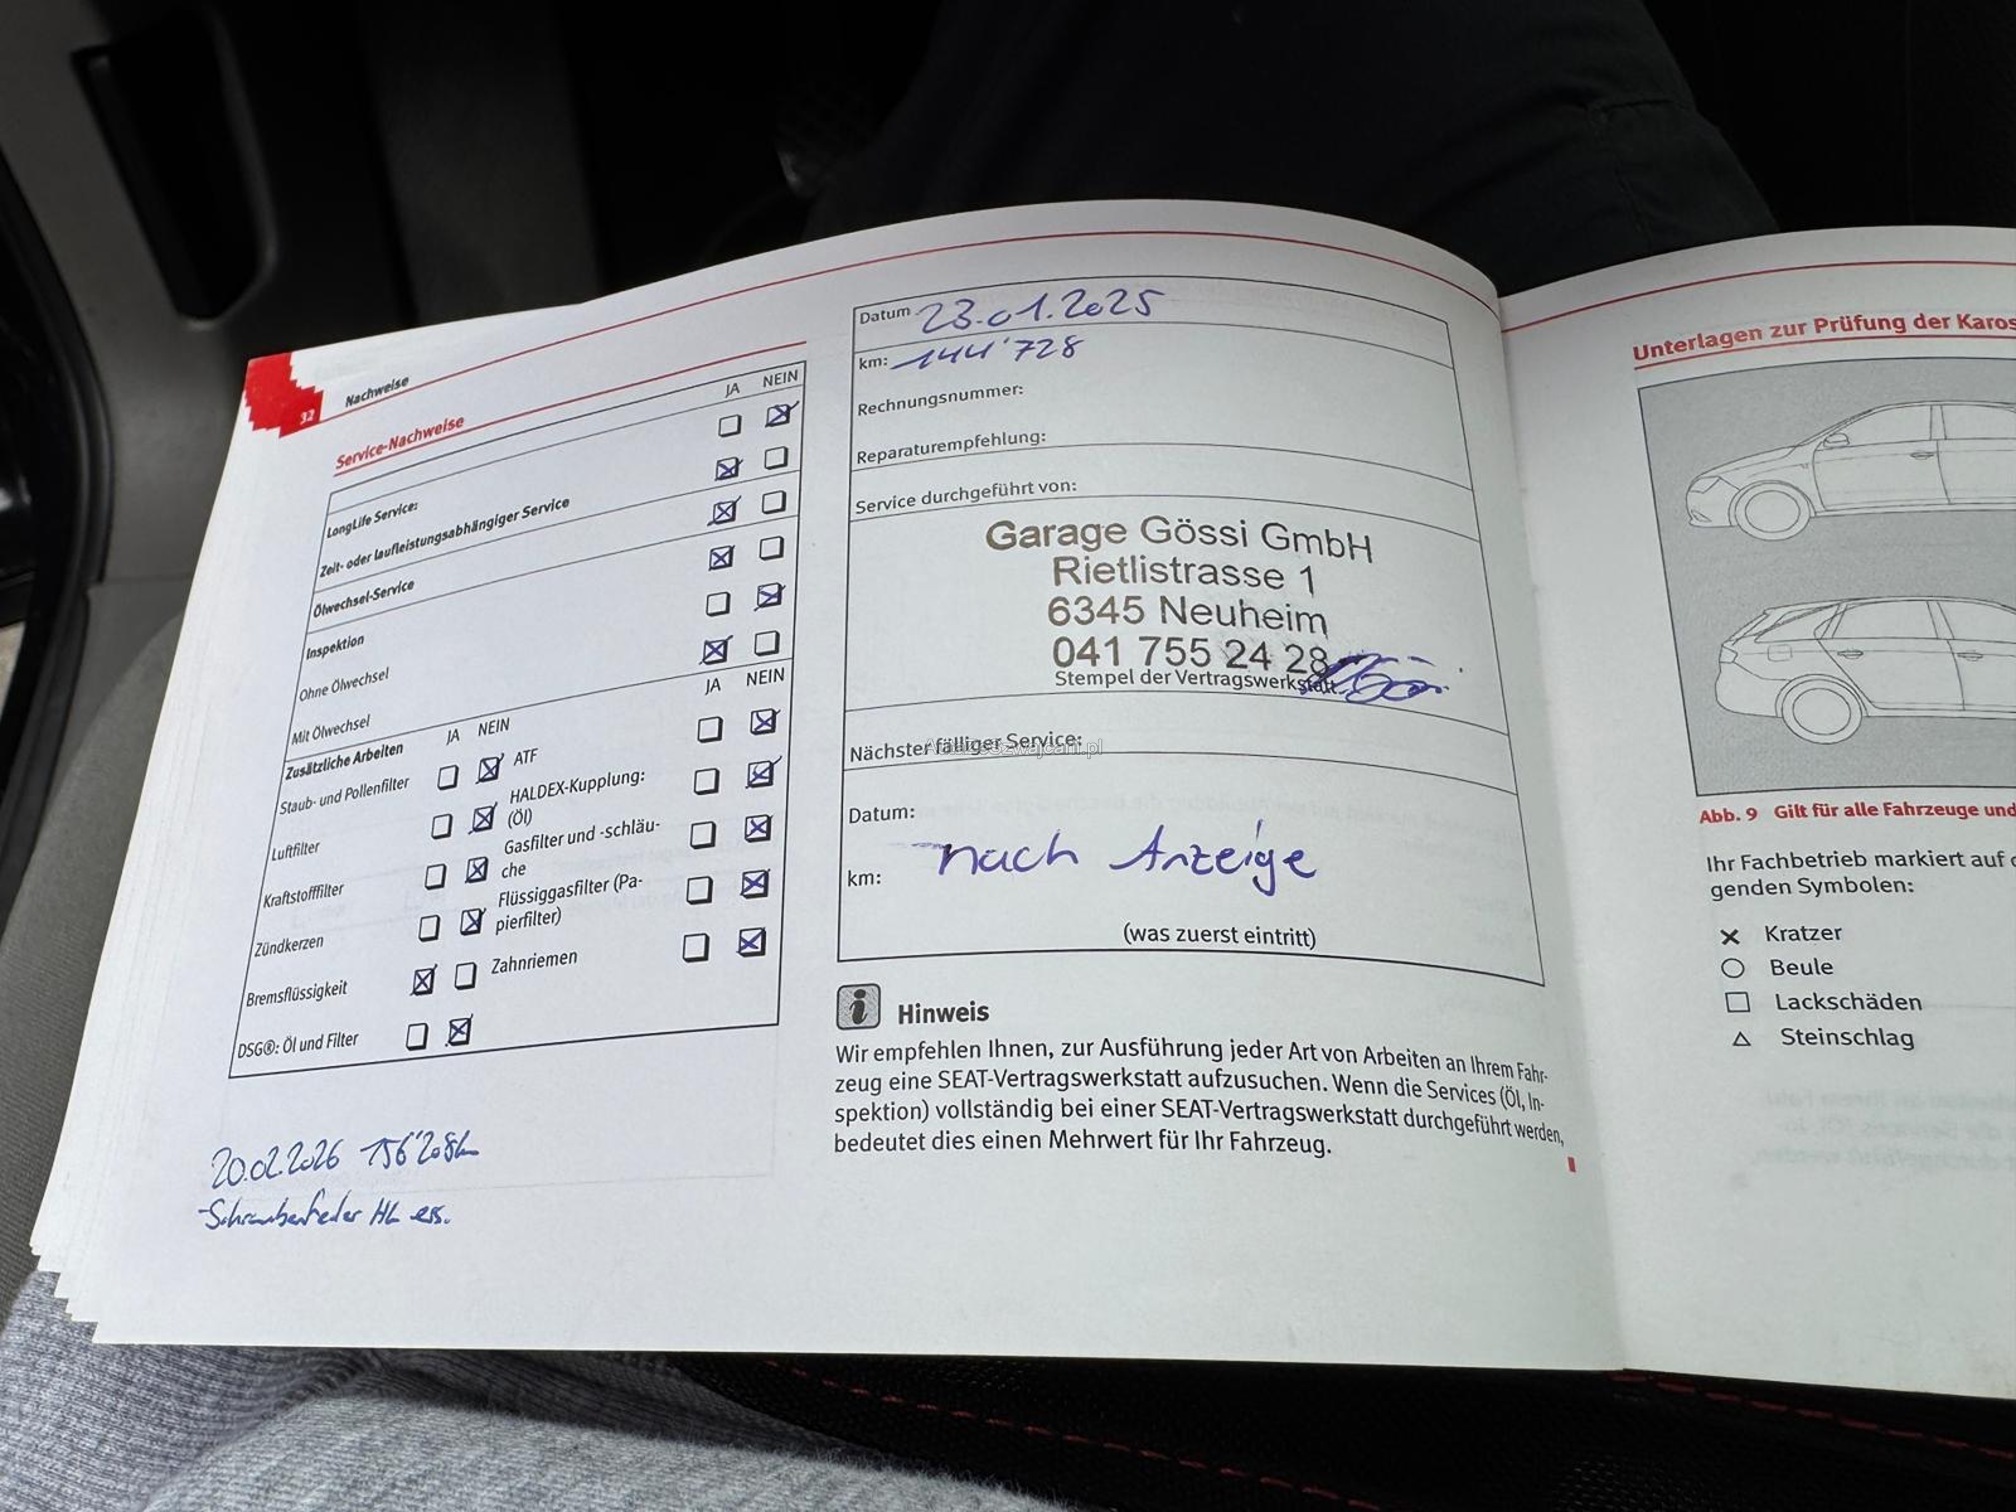 32
Nachweise
Service-Nachweise
JA NEIN
LongLife Service: ☐ ☒
Zeit- oder laufleistungsabhängiger Service ☒ ☐
Ölwechsel-Service ☒ ☐
Inspektion ☒ ☐
Ohne Ölwechsel ☐ ☒
Mit Ölwechsel ☒ ☐
Zusätzliche Arbeiten JA NEIN JA NEIN
Staub- und Pollenfilter ☐ ☒ ATF ☐ ☒
Luftfilter ☐ ☒ HALDEX-Kupplung: ☐ ☒
(Öl)
Kraftstofffilter ☐ ☒ Gasfilter und -schläu- ☐ ☒
che
Zündkerzen ☐ ☒ Flüssiggasfilter (Pa- ☐ ☒
pierfilter)
Bremsflüssigkeit ☒ ☐ Zahnriemen ☐ ☒
DSG®: Öl und Filter ☐ ☒
20.02.2026 156'208km
-Schraubenfeder HL ers.
Datum 23.01.2025
km: 144'728
Rechnungsnummer:
Reparaturempfehlung:
Service durchgeführt von:
Garage Gössi GmbH
Rietlistrasse 1
6345 Neuheim
041 755 24 28
Stempel der Vertragswerkstatt
Nächster fälliger Service:
Datum:
nach Anzeige
km:
(was zuerst eintritt)
Hinweis
Wir empfehlen Ihnen, zur Ausführung jeder Art von Arbeiten an Ihrem Fahr-
zeug eine SEAT-Vertragswerkstatt aufzusuchen. Wenn die Services (Öl, In-
spektion) vollständig bei einer SEAT-Vertragswerkstatt durchgeführt werden,
bedeutet dies einen Mehrwert für Ihr Fahrzeug.
Unterlagen zur Prüfung der Karos
Abb. 9 Gilt für alle Fahrzeuge und
Ihr Fachbetrieb markiert auf
genden Symbolen:
Kratzer
Beule
Lackschäden
Steinschlag